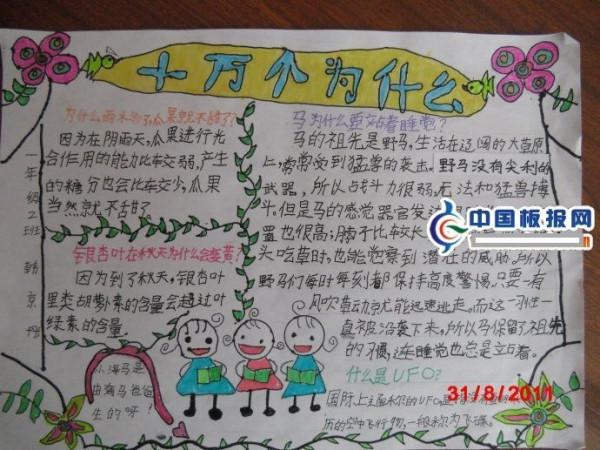 十万个为什么
一年级2班
为什么雨水多了瓜果就不甜了?
因为在阴雨天,瓜果进行光
合作用的能力比车交弱,产生
的糖分也会比车交少,瓜果
当然就不甜了
银杏叶在秋天为什么会变黄?
因为到了秋天,银杏叶
里类胡萝素的含量会超过叶
绿素的含量.
小海马是
由海马爸爸
生的呀!
马为什么要站着睡觉?
马的祖先是野马,生活在辽阔的大草原
上,常常受到猛兽的袭击.野马没有尖利的
武器,所以占斗力很弱,无法和猛兽搏
斗.但是马的感觉器官发
置也很高;脖子比较长
头吃草时,也能觉察到潜在的威胁.所以
野马们每时每刻都保持高度警惕.只要一有
风吹草动就能迅速逃走.而这一习性一
直被沿袭下来,所以马保留了祖先
的习惯,连睡觉也总是立占着.
什么是UFO?
国际上上
历的空中飞行物,一般称为飞碟.
中国板报网
31/8/2011